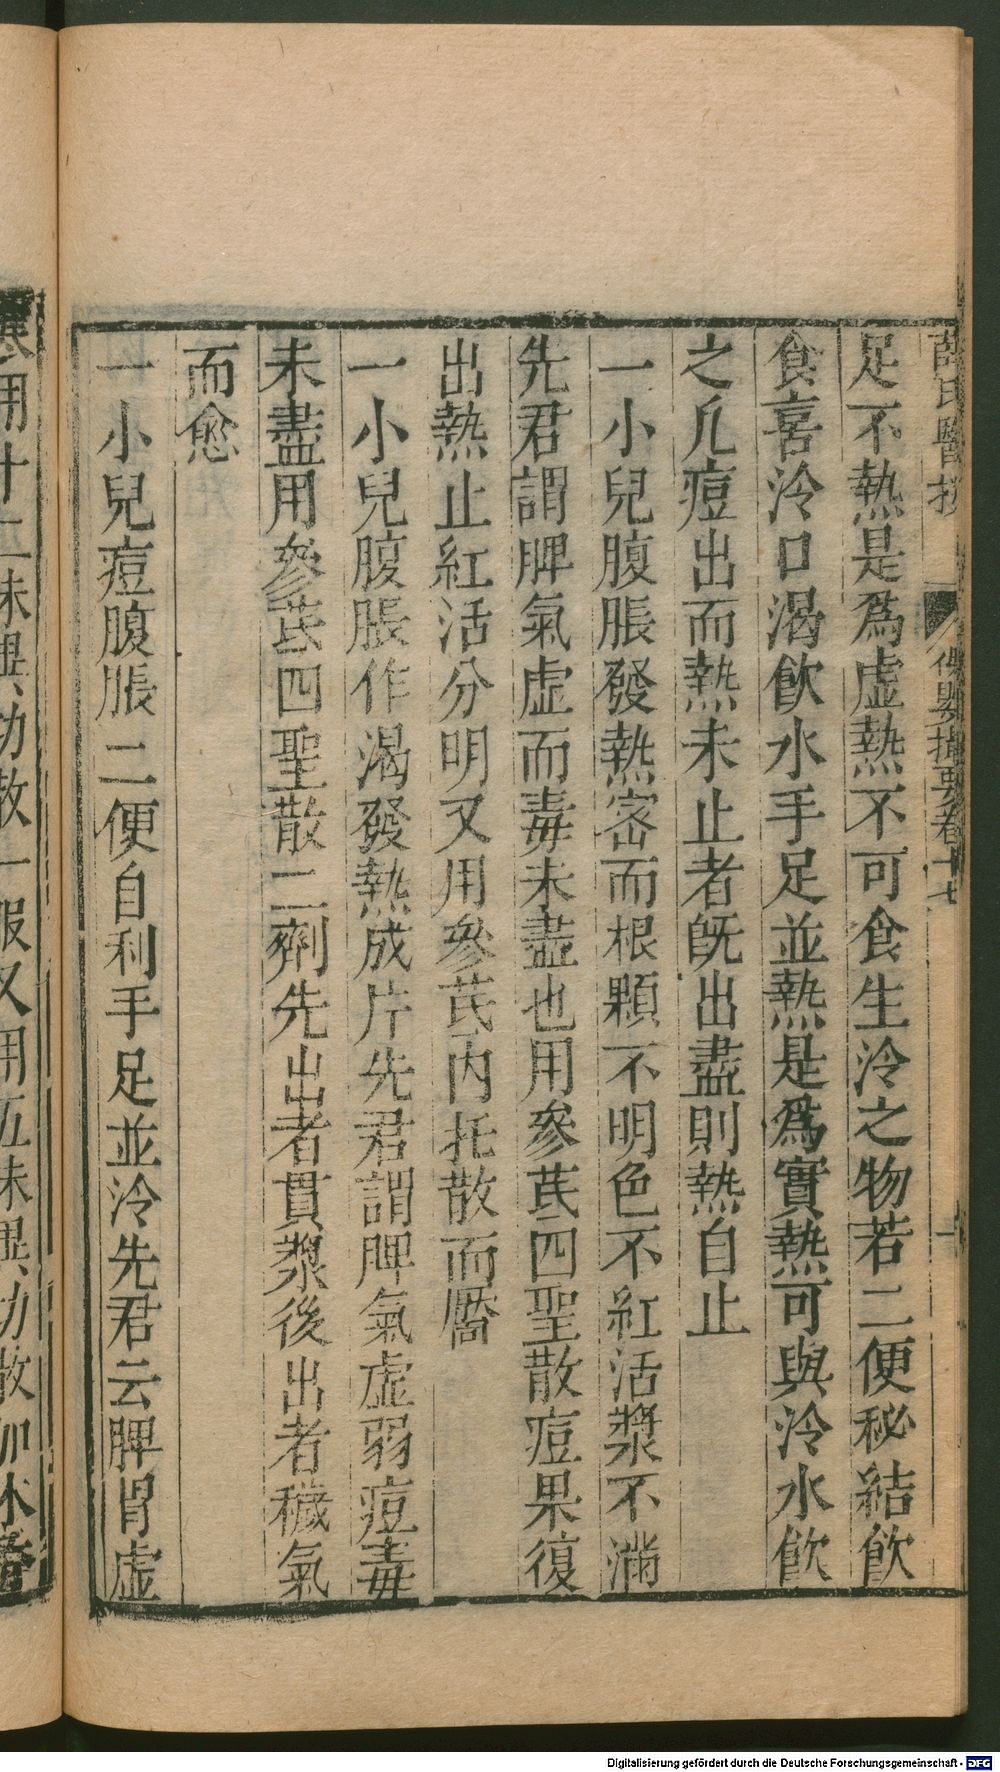 薛氏醫按　保嬰撮要卷十七
足不熱是為虛熱不可食生冷之物若二便秘結飲
食喜冷口渴飲水手足並熱是為實熱可與冷水飲
之凡痘出而熱未止者旣出盡則熱自止
一小兒腹脹發熱密而根顆不明色不紅活漿不滿
先君謂脾氣虛而毒未盡也用參芪四聖散痘果復
出熱止紅活分明又用參芪內托散而靨
一小兒腹脹作渴發熱成片先君謂脾氣虛弱痘毒
未盡用參芪四聖散二劑先出者貫漿後出者穢氣
而愈
一小兒痘腹脹二便自利手足並冷先君云脾胃虛
寒用十二味異功散一服又用五味異功散加木香
Digitalisierung gefördert durch die Deutsche Forschungsgemeinschaft - DFG